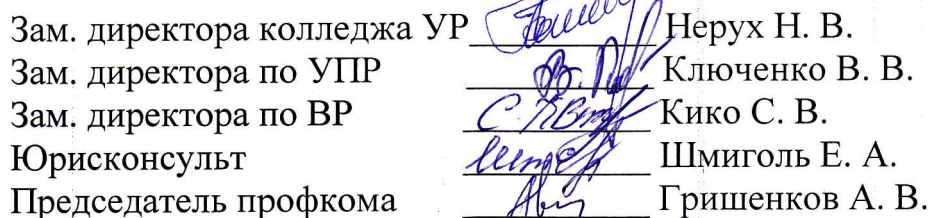 Зам. директора колледжа УР Нерух Н. В.
Зам. директора по УПР Ключенко В. В.
Зам. директора по ВР Кико С. В.
Юрисконсульт Шмиголь Е. А.
Председатель профкома Гришенков А. В.